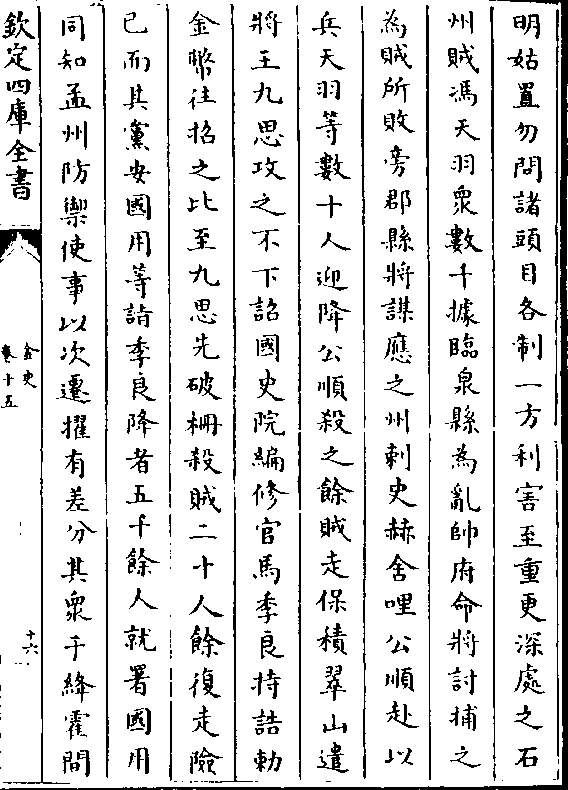 明姑置勿問諸頭目各制一方利害至重更深處之石
州賊馮天羽衆數千據臨泉縣為亂帥府命將討捕之
為賊所敗旁郡縣將謀應之州刺史赫舍哩公順赴以
兵天羽等數十人迎降公順殺之餘賊走保積翠山遣
將王九思攻之不下詔國史院編修官馬季良持誥勅
金幣往招之比至九思先破柵殺賊二千人餘復走險
已而其黨安國用等詣季良降者五千餘人就署國用
同知孟州防禦使事以次遷擢有差分其衆于絳霍間
欽定四庫全書
金史
卷十五
十六